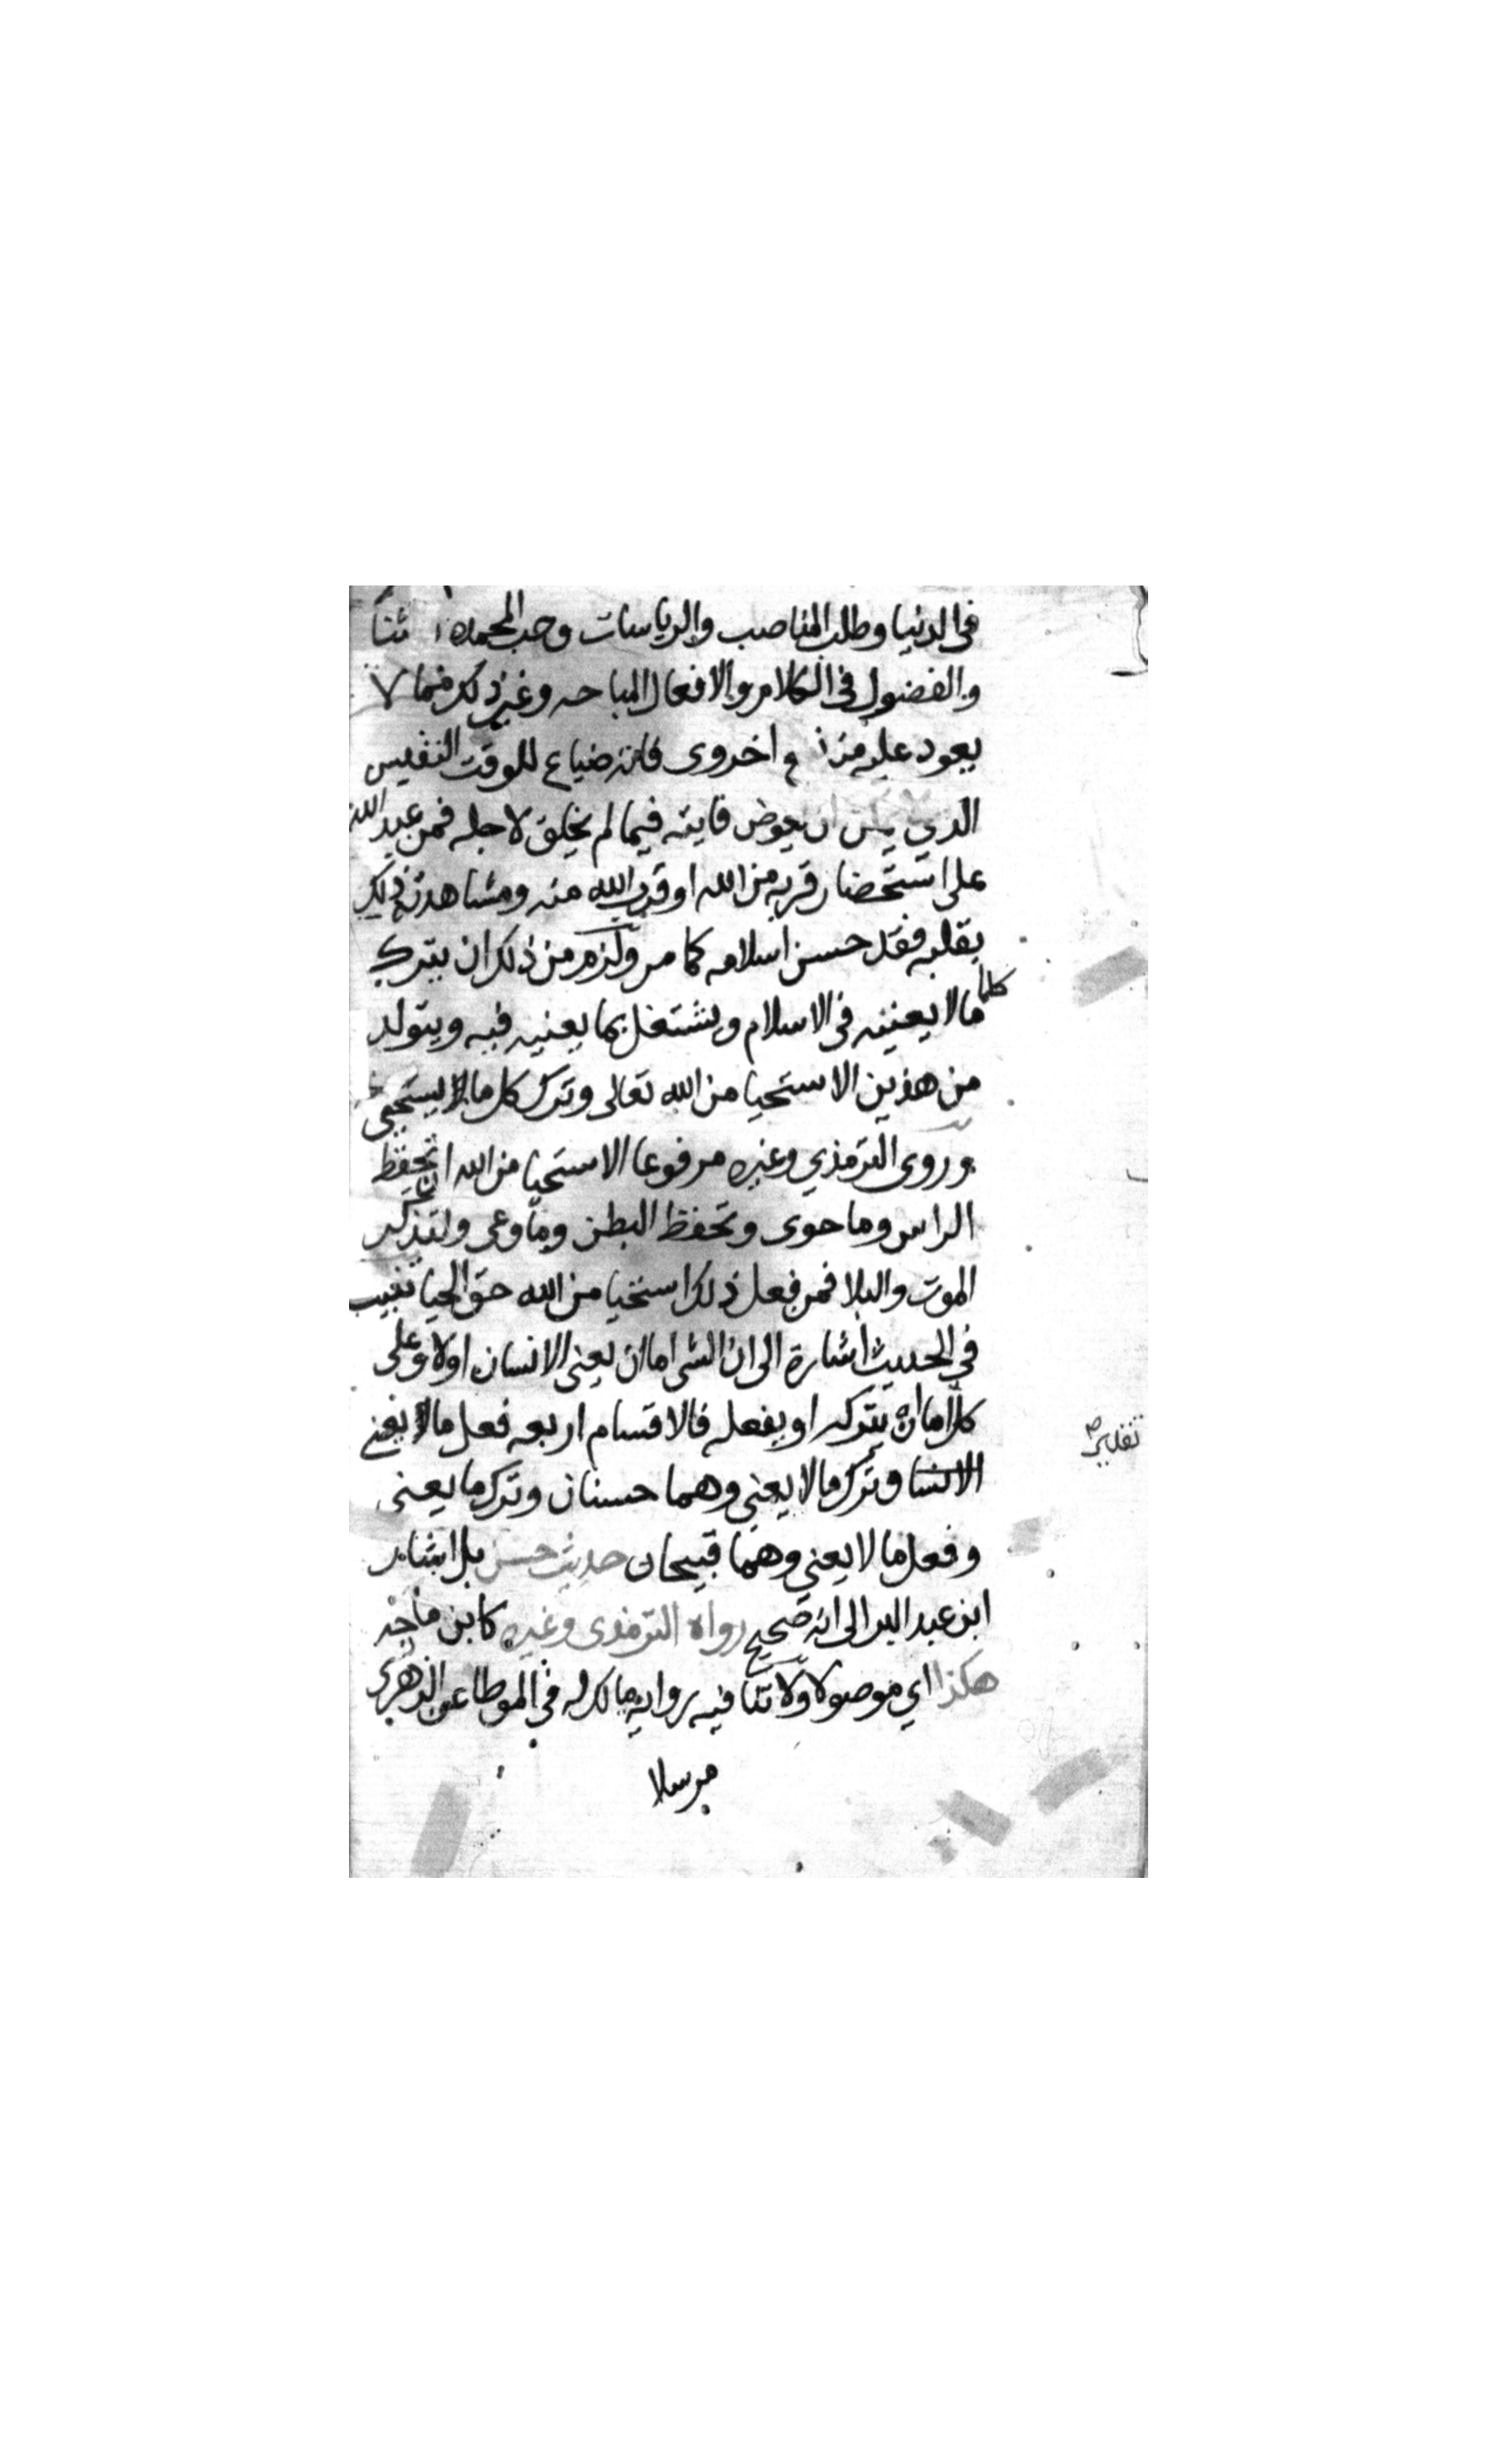 في الدنيا وطلب المناصب والرياسات وحب المحمدة ثنا
والفضول في الكلام والافعال المباحه وغير ذلك مما لا
يعود عليه منه اخروي فانه ضياع للوقت النفيس
الذي ان يعوض فايته فيما لم يخلق لاجله فمن عبد الله
على استحضار قربه من الله او قرب الله منه ومشاهدته ذلك
بقلبه فقد حسن اسلامه كما مر ولزم من ذلك ان يترك
كلما
مالا يعنيه في الاسلام ويشتغل بما يعنيه فيه ويتولد
من هذين الاستحيا من الله تعالى وترك كل ما يستحيى
وروى الترمذي وغيره مرفوعا الاستحيا من الله ان تحفظ
الراس وما حوى وتحفظ البطن وما وعى ولتذكر
الموت والبلا فمن فعل ذلك استحيا من الله حق الحيا تنبيه
في الحديث اشارة الى ان الشي اما ان يعني الانسان اولا وعلى
كل اما ان يتركه او يفعله فالاقسام اربعه فعل ما يعني
الانسا وترك مالا يعني وهما حسنان وترك ما يعني
وفعل ما لا يعني وهما قبيحان حديث حسن بل اشار
ابن عبد البر الى انه صحيح رواه الترمذي وغيره كابن ماجه
هكذا اي موصولا ولا تنافيه رواية مالك له في الموطا عن الزهري
مرسلا